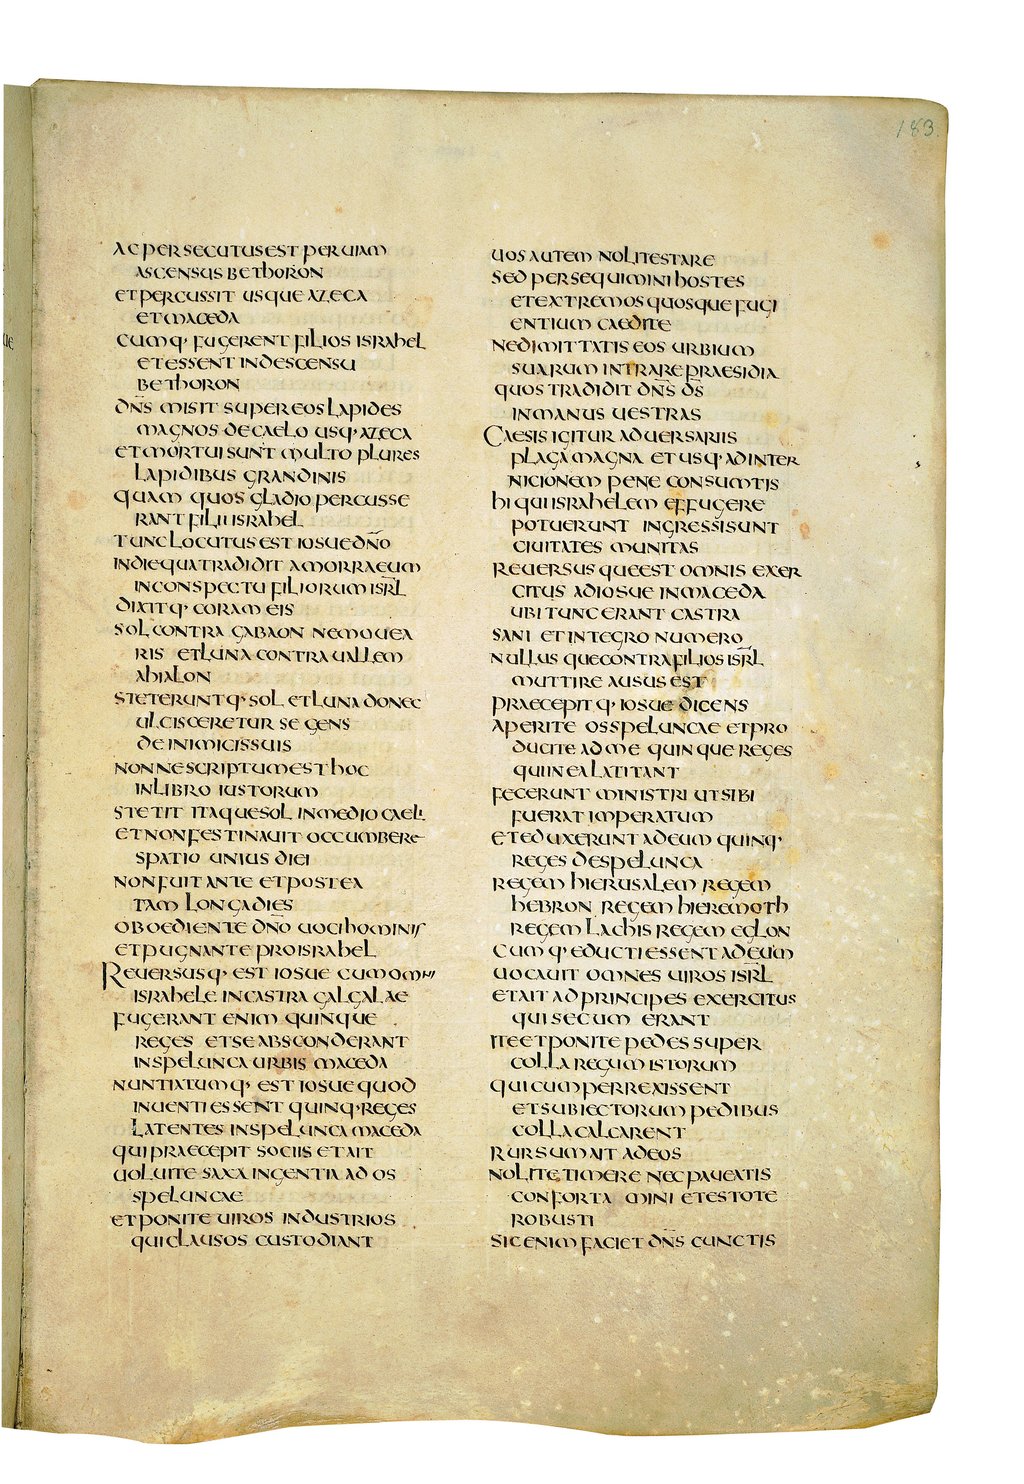 183
AC PERSECUTUS EST PER UIAM
ASCENSUS BETHORON
ET PERCUSSIT USQUE AZECA
ET MACEDA
CUMQ· FUGERENT FILIOS ISRAHEL
ET ESSENT IN DESCENSU
BETHORON
DN̄S MISIT SUPER EOS LAPIDES
MAGNOS DE CAELO USQ· AZECA
ET MORTUI SUNT MULTO PLURES
LAPIDIBUS GRANDINIS
QUAM QUOS GLADIO PERCUSSE
RANT FILII ISRAHEL
TUNC LOCUTUS EST IOSUE DN̄O
IN DIE QUA TRADIDIT AMORRAEUM
IN CONSPECTU FILIORUM ISR̄L
DIXITQ· CORAM EIS
SOL CONTRA GABAON NE MOUEA
RIS ET LUNA CONTRA UALLEM
AHIALON
STETERUNTQ· SOL ET LUNA DONEC
ULCISCERETUR SE GENS
DE INIMICIS SUIS
NONNE SCRIPTUM EST HOC
IN LIBRO IUSTORUM
STETIT ITAQUE SOL IN MEDIO CAELI
ET NON FESTINAUIT OCCUMBERE
SPATIO UNIUS DIEI
NON FUIT ANTE ET POSTEA
TAM LONGA DIES
OBOEDIENTE DN̄O UOCI HOMINIS
ET PUGNANTE PRO ISRAHEL
REUERSUSQ· EST IOSUE CUM OMNI
ISRAHELE IN CASTRA GALGALAE
FUGERANT ENIM QUINQUE
REGES ET SE ABSCONDERANT
IN SPELUNCA URBIS MACEDA
NUNTIATUMQ· EST IOSUE QUOD
INUENTI ESSENT QUINQ· REGES
LATENTES IN SPELUNCA MACEDA
QUI PRAECEPIT SOCIIS ET AIT
UOLUITE SAXA INGENTIA AD OS
SPELUNCAE
ET PONITE UIROS INDUSTRIOS
QUI CLAUSOS CUSTODIANT
UOS AUTEM NOLITE STARE
SED PERSEQUIMINI HOSTES
ET EXTREMOS QUOSQUE FUGI
ENTIUM CAEDITE
NE DIMITTATIS EOS URBIUM
SUARUM INTRARE PRAESIDIA
QUOS TRADIDIT DN̄S D̄S
IN MANUS UESTRAS
CAESIS IGITUR ADUERSARIIS
PLAGA MAGNA ET USQ· AD INTER
NICIONEM PENE CONSUMTIS
HI QUI ISRAHELEM EFFUGERE
POTUERUNT INGRESSI SUNT
CIUITATES MUNITAS
REUERSUSQUE EST OMNIS EXER
CITUS AD IOSUE IN MACEDA
UBI TUNC ERANT CASTRA
SANI ET INTEGRO NUMERO
NULLUSQUE CONTRA FILIOS ISR̄L
MUTTIRE AUSUS EST
PRAECEPITQ· IOSUE DICENS
APERITE OS SPELUNCAE ET PRO
DUCITE AD ME QUINQUE REGES
QUI IN EA LATITANT
FECERUNT MINISTRI UT SIBI
FUERAT IMPERATUM
ET EDUXERUNT AD EUM QUINQ·
REGES DE SPELUNCA
REGEM HIERUSALEM REGEM
HEBRON REGEM HIEREMOTH
REGEM LACHIS REGEM EGLON
CUMQ· EDUCTI ESSENT AD EUM
UOCAUIT OMNES UIROS ISR̄L
ET AIT AD PRINCIPES EXERCITUS
QUI SECUM ERANT
ITE ET PONITE PEDES SUPER
COLLA REGUM ISTORUM
QUI CUM PERREXISSENT
ET SUBIECTORUM PEDIBUS
COLLA CALCARENT
RURSUM AIT AD EOS
NOLITE TIMERE NEC PAUEATIS
CONFORTAMINI ET ESTOTE
ROBUSTI
SIC ENIM FACIET DN̄S CUNCTIS